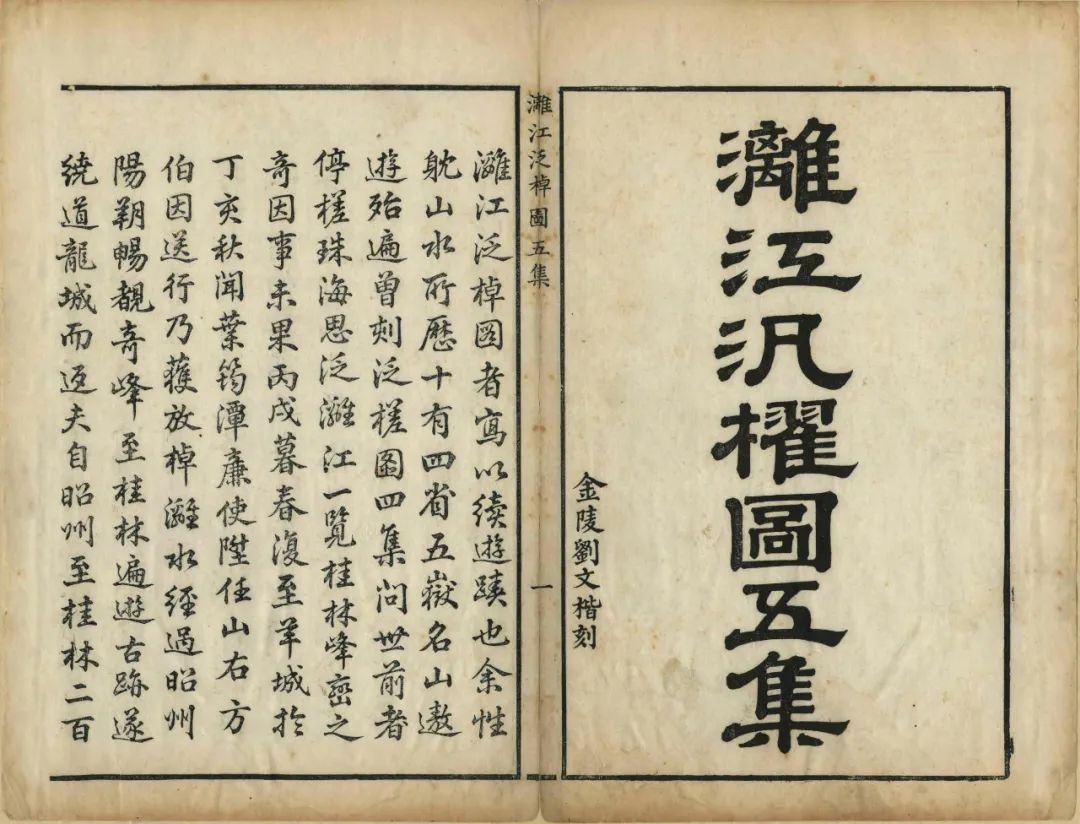 灕江汎櫂圖五集
金陵劉文楷刻
灕江泛棹圖五集
一
灕江泛棹圖者寫以續遊蹟也余性
躭山水所歷十有四省五嶽名山遨
遊殆遍曾刻泛槎圖四集问世前者
停槎珠海思泛灕江一覽桂林峰巒之
奇因事未果丙戌暮春復至羊城於
丁亥秋聞葉筠潭廉使陞任山右方
伯因送行乃獲放棹灕水經過昭州
陽朔暢覩奇峰至桂林遍遊古跡遂
繞道龍城而返夫自昭州至桂林二百